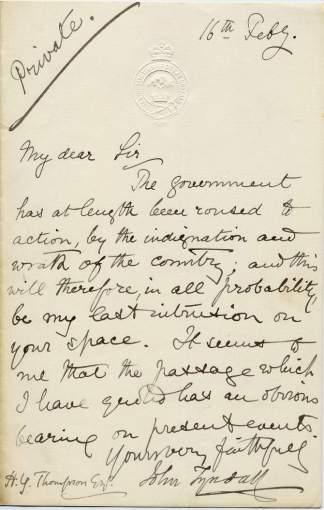 Private.
16th Feby.
My dear Sir
The government
has at length been roused to
action, by the indignation and
wrath of the country; and this
will therefore, in all probability
be my last intrusion on
your space. It seems to
me that the passage which
I have quoted has an obvious
bearing on present events.
Yours very faithfully
John Tyndall
H. Y. Thompson Esq.